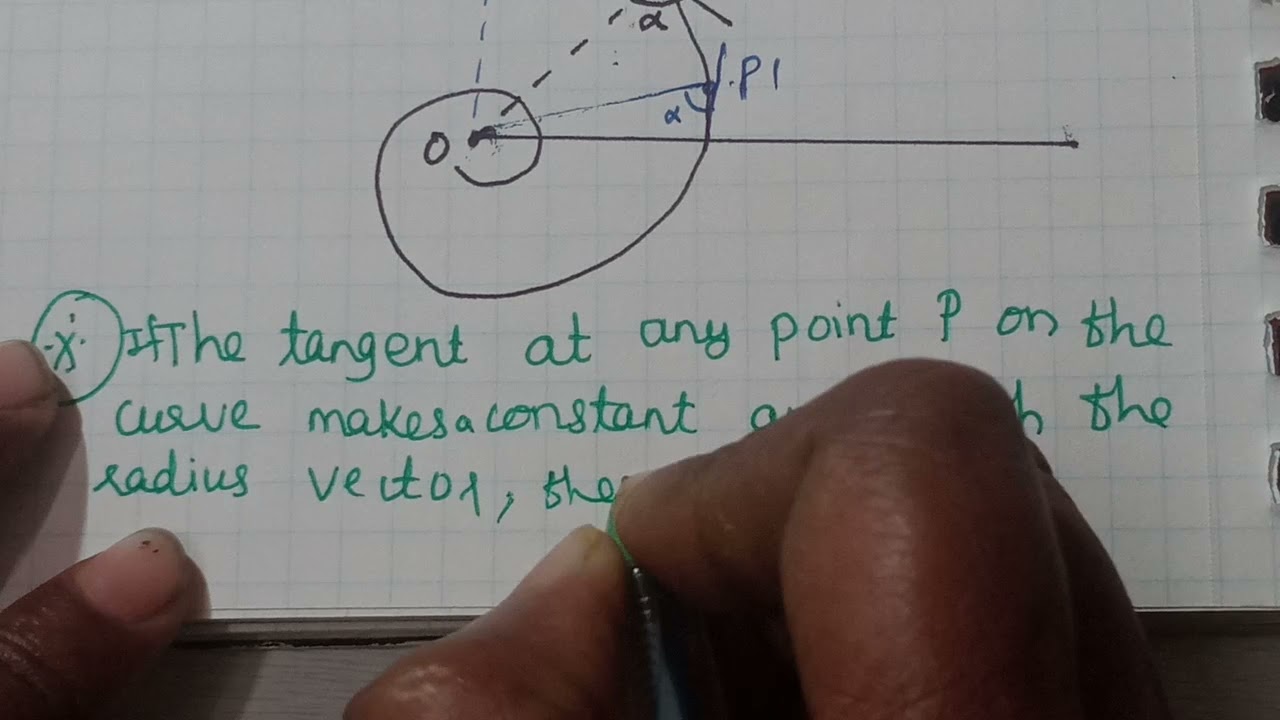 α
P1
α
O
If The tangent at any point P on the
curve makes a constant the
radius vector, the